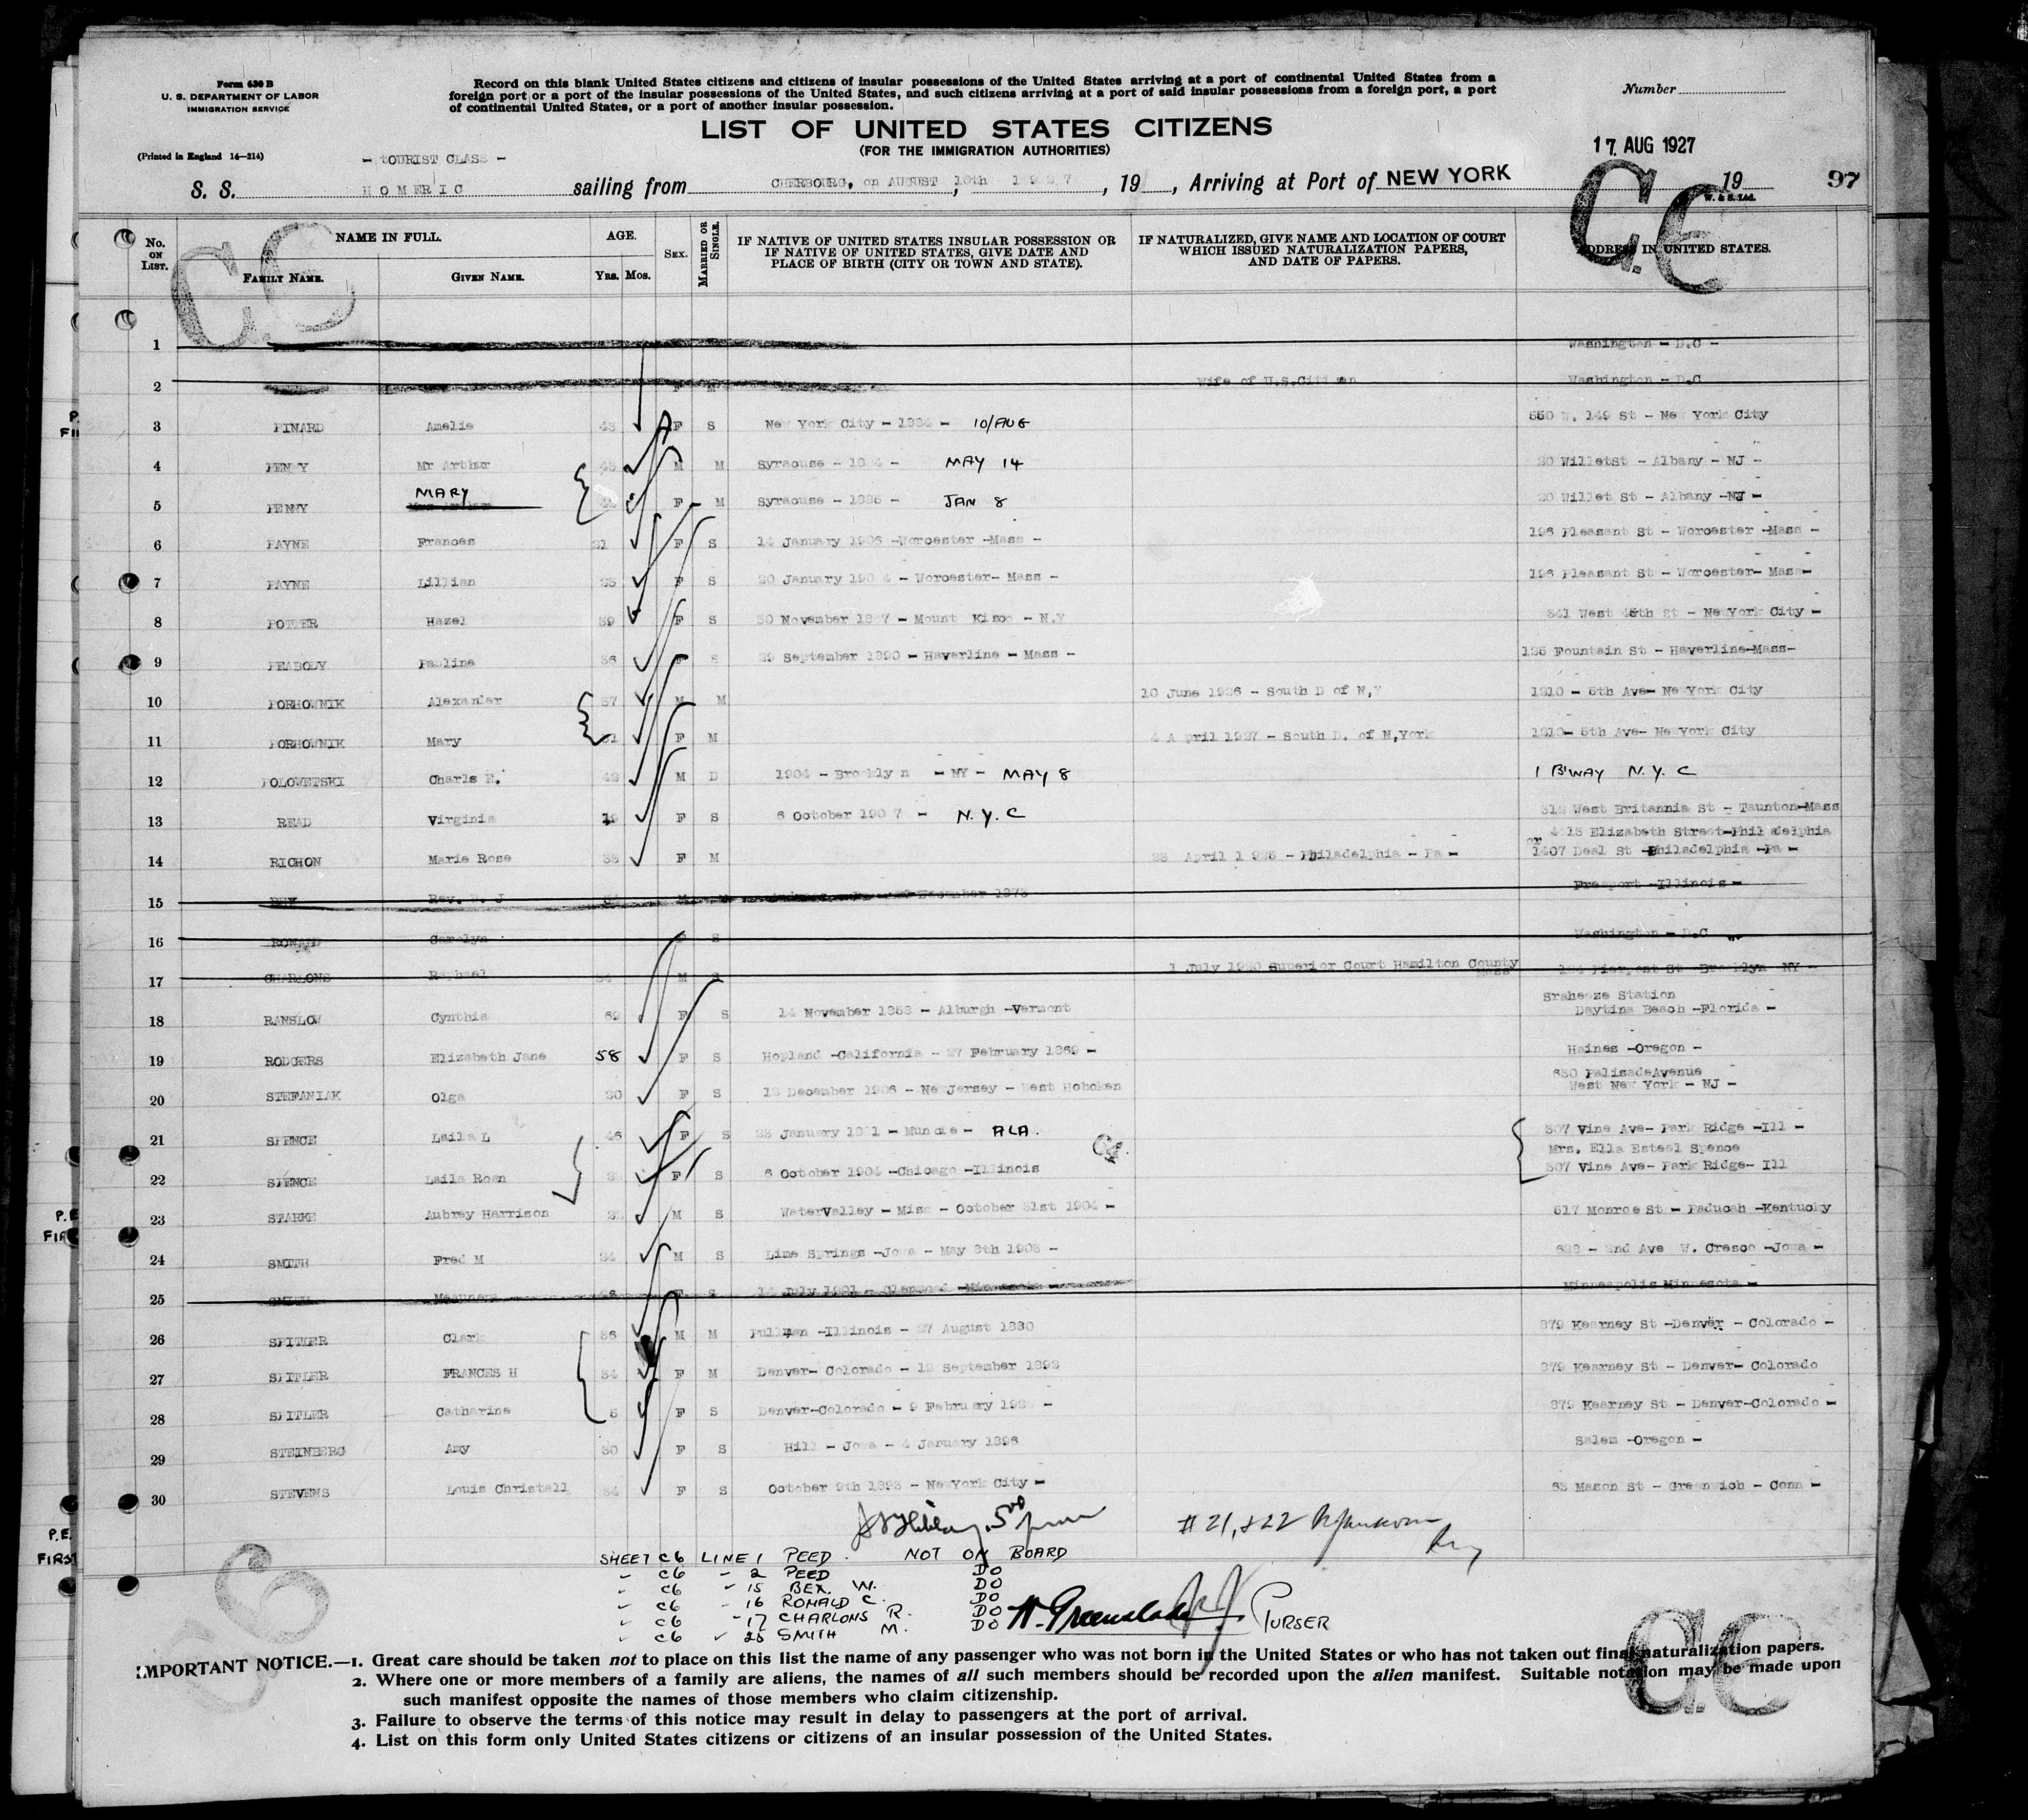 Form 630 B
U. S. DEPARTMENT OF LABOR
IMMIGRATION SERVICE
Record on this blank United States citizens and citizens of insular possessions of the United States arriving at a port of continental United States from a
foreign port or a port of the insular possessions of the United States, and such citizens arriving at a port of said insular possessions from a foreign port, a port
of continental United States, or a port of another insular possession.
Number
LIST OF UNITED STATES CITIZENS
(FOR THE IMMIGRATION AUTHORITIES)
(Printed in England 14—214)
- TOURIST CLASS -
17 AUG 1927
S. S. HOMERIC sailing from CHERBOURG, on AUGUST 10th 1927, 19 , Arriving at Port of NEW YORK 19
97
W. & S. Ltd.
No. ON LIST.
NAME IN FULL.
FAMILY NAME.
GIVEN NAME.
AGE.
YRS. MOS.
SEX.
MARRIED OR SINGLE.
IF NATIVE OF UNITED STATES INSULAR POSSESSION OR
IF NATIVE OF UNITED STATES, GIVE DATE AND
PLACE OF BIRTH (CITY OR TOWN AND STATE).
IF NATURALIZED, GIVE NAME AND LOCATION OF COURT
WHICH ISSUED NATURALIZATION PAPERS,
AND DATE OF PAPERS.
ADDRESS IN UNITED STATES.
1 Washington - D.C -
2 F M Wife of U.S.Citizen Washington - D.C
3 PINARD Amelie 43 F S New York City - 1884 - 10/AUG 550 W. 149 St - New York City
4 PENNY Mr Arthur M M Syracuse - 1884 - MAY 14 20 Willetst - Albany - NJ -
5 PENNY MARY F M Syracuse - 1885 - JAN 8 20 Willet St - Albany -NJ -
6 PAYNE Frances 21 F S 14 January 1906 -Worcester -Mass - 196 Pleasant St - Worcester -Mass -
7 PAYNE Lillian 23 F S 20 January 1904 - Worcester- Mass - 196 Pleasant St - Worcester- Mass-
8 POTTER Hazel 39 F S 30 November 1887 - Mount Kisco - N.Y 341 West 45th St - New York City -
9 PEABODY Pauline 36 F S 29 September 1890 - Haverline - Mass - 125 Fountain St - Haverline-Mass-
10 PORHOWNIK Alexander 37 M M 10 June 1926 - South D of N,Y 1210 - 5th Ave- New York City
11 PORHOWNIK Mary 31 F M 4 April 1927 - South D. of N,York 1210- 5th Ave- New York City
12 POLOWETSKI Charls E. 42 M D 1904 - Brooklyn - NY - MAY 8 1 B'WAY N.Y.C
13 READ Virginia 19 F S 6 October 1907 - N.Y.C 312 West Britannia St - Taunton-Mass
or 4213 Elizabeth Street-Philadelphia
14 RICHON Marie Rose 33 F M 23 April 1925 - Philadelphia - Pa - 1407 Deal St -Philadelphia -Pa -
15 BEX Rev. W. J M M December 1873 Freeport -Illinois -
16 RONALD Carolyn S Washington - D.C
17 CHARLONS Raphael 34 M S 1 July 1920 Superior Court Hamilton County Mass Pierpont St -Brooklyn -NY -
18 RANSLOW Cynthia 69 F S 14 November 1858 - Alburgh -Vermont Sraheeze Station
Daytina Beach -Florida -
19 RODGERS Elizabeth Jane 58 F S Hopland -California - 27 February 1869 - Haines -Oregon -
20 STEFANIAK Olga 20 F S 12 December 1906 - New Jersey - West Hoboken 630 PalisadeAvenue
West New York - NJ -
21 SPENCE Laila L 46 F S 23 January 1881 - Muncie - ALA. 307 Vine Ave- Park Ridge -Ill -
Mrs. Ella Esteel Spence
22 SPENCE Laila Roan F S 6 October 1904 -Chicago -Illinois 307 Vine Ave- Park Ridge- Ill
23 STARKE Aubrey Harrison M S WaterValley - Miss - October 31st 1904 - 517 Monroe St - Paducah -Kentucky
24 SMITH Fred M 24 M S Lime Springs -Jowa - May 8th 1903 - 628 - 2nd Ave W. Cresco -Jowa -
25 SMITH F S 14 July 1881 - Glenwood -Minnesota Minneapolis Minnesota -
26 SPITLER Clark 36 M M Pullman -Illinois - 27 August 1890 879 Kearney St -Denver - Colorado -
27 SPITLER FRANCES H 34 F M Denver- Colorado - 12 September 1892 879 Kearney St - Denver- Colorado
28 SPITLER Catharine 5 F S Denver-Colorado - 9 February 879 Kearney St - Denver-Colorado -
29 STEINBERG Amy 30 F S Hill - Jowa - 4 January 1896 Salem -Oregon -
30 STEVENS Louis Christall 34 F S October 9th 1893 - NewYork City - 63 Mason St - Greenwich - Conn -
# 21, & 22
SHEET C6 LINE 1 PEED. NOT ON BOARD
" C6 " 2 PEED DO
" C6 " 15 BEX. W. DO
" C6 " 16 RONALD C. DO
" C6 " 17 CHARLONS R. DO
" C6 " 25 SMITH M. DO
PURSER
IMPORTANT NOTICE.—1. Great care should be taken not to place on this list the name of any passenger who was not born in the United States or who has not taken out final naturalization papers.
2. Where one or more members of a family are aliens, the names of all such members should be recorded upon the alien manifest. Suitable notation may be made upon
such manifest opposite the names of those members who claim citizenship.
3. Failure to observe the terms of this notice may result in delay to passengers at the port of arrival.
4. List on this form only United States citizens or citizens of an insular possession of the United States.